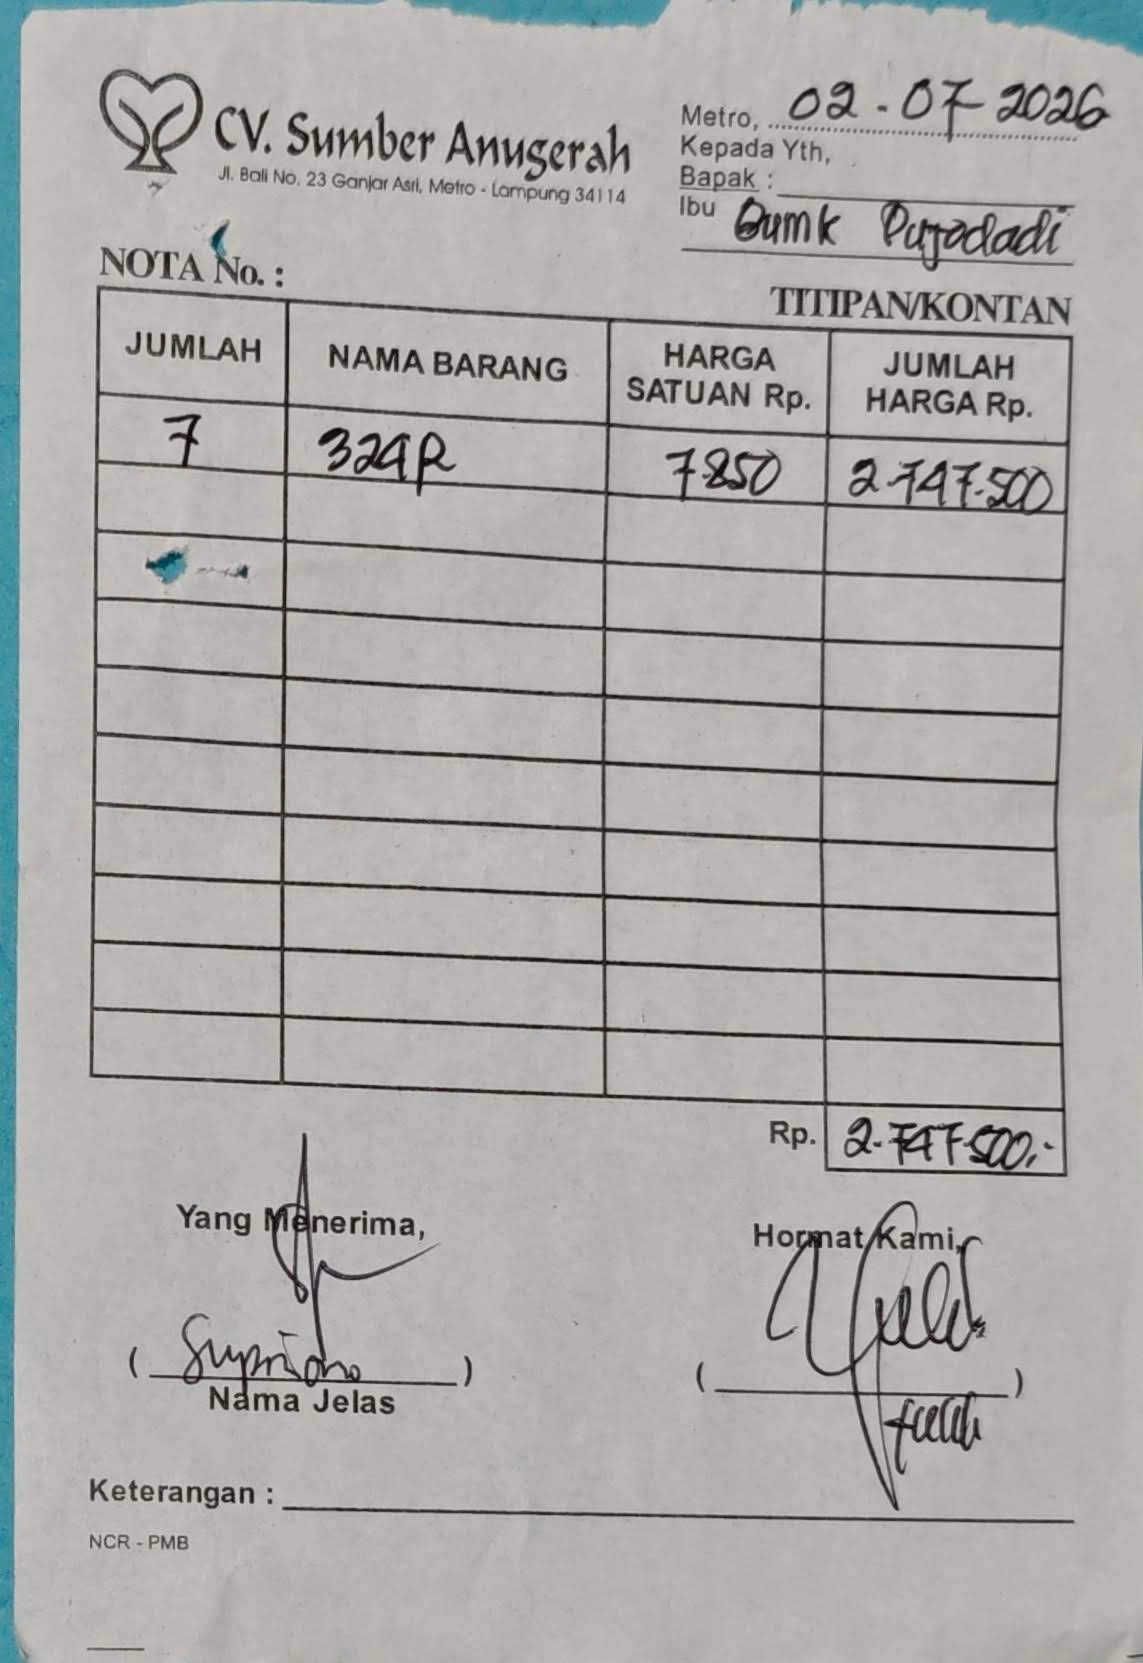 CV. Sumber Anugerah
Jl. Bali No. 23 Ganjar Asri, Metro - Lampung 34114
Metro, 02 - 07 - 2026
Kepada Yth,
Bapak :
Ibu Bumk Purjodadi
NOTA No. :
TITIPAN/KONTAN
JUMLAH NAMA BARANG HARGA SATUAN Rp. JUMLAH HARGA Rp.
7 324R 7.850 2.747.500
Rp. 2.747.500,-
Yang Menerima, Hormat Kami,
( Supriono ) ( )
Nama Jelas
Keterangan :
NCR - PMB